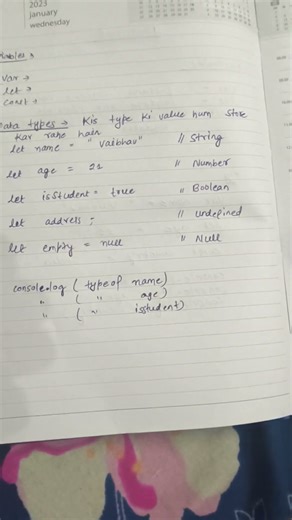 2023
January
wednesday
Var →
let →
const →
Data types → Kis type ki value hum store
kar rahe hain
let name = "Vaibhav" // String
let age = 21 // Number
let isStudent = true // Boolean
let address ; // undefined
let empty = null // Null
console.log ( typeof name)
" ( " age)
" ( " isstudent)